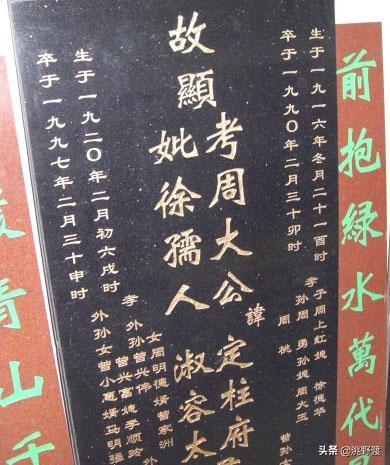 前抱綠水萬代
生于一九一六年冬月二十一酉时
卒于一九九〇年二月三十卯时
孝子周上红媳徐德华
孙周勇孙媳周大玉
周桃
曾孙
故顯考周大公諱定柱府
妣徐孺人淑容太
女周明德婿曾家洲
孝外孙曾兴伟
外曾兴富媳李顺
外孙女曾小惠婿马明
生于一九二〇年二月初六戌时
卒于一九九七年二月三十申时
青山千
头条 @洮野渡